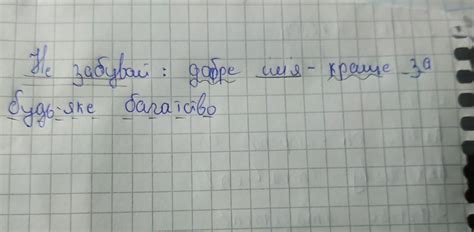 Не забувай: добре имя - краще за
будь-яке багатство